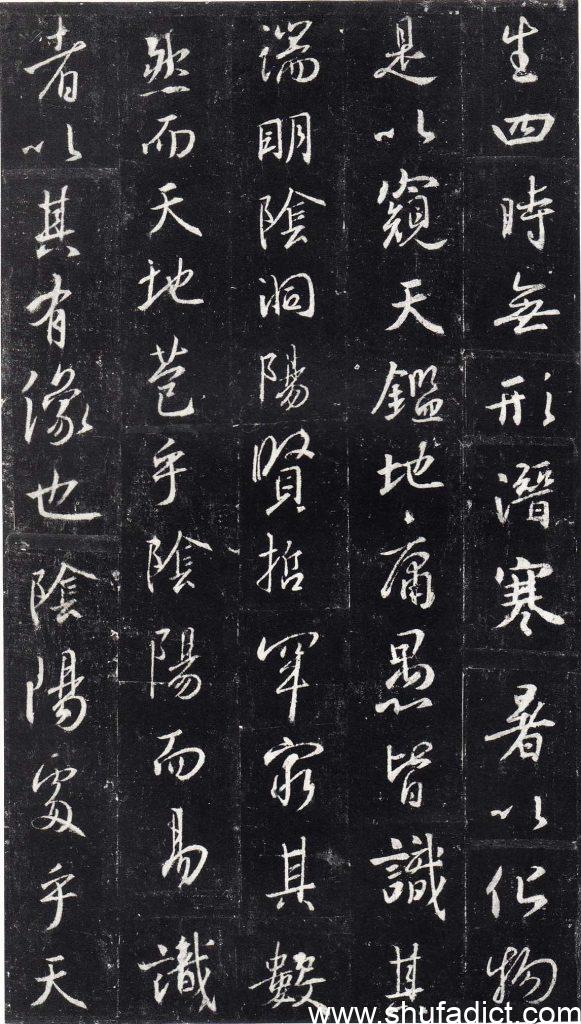 生四時無形潛寒暑以化物
是以窺天鑑地庸愚皆識其
端明陰洞陽賢哲罕窮其數
然而天地苞乎陰陽而易識
者以其有像也陰陽處乎天
www.shufadict.com